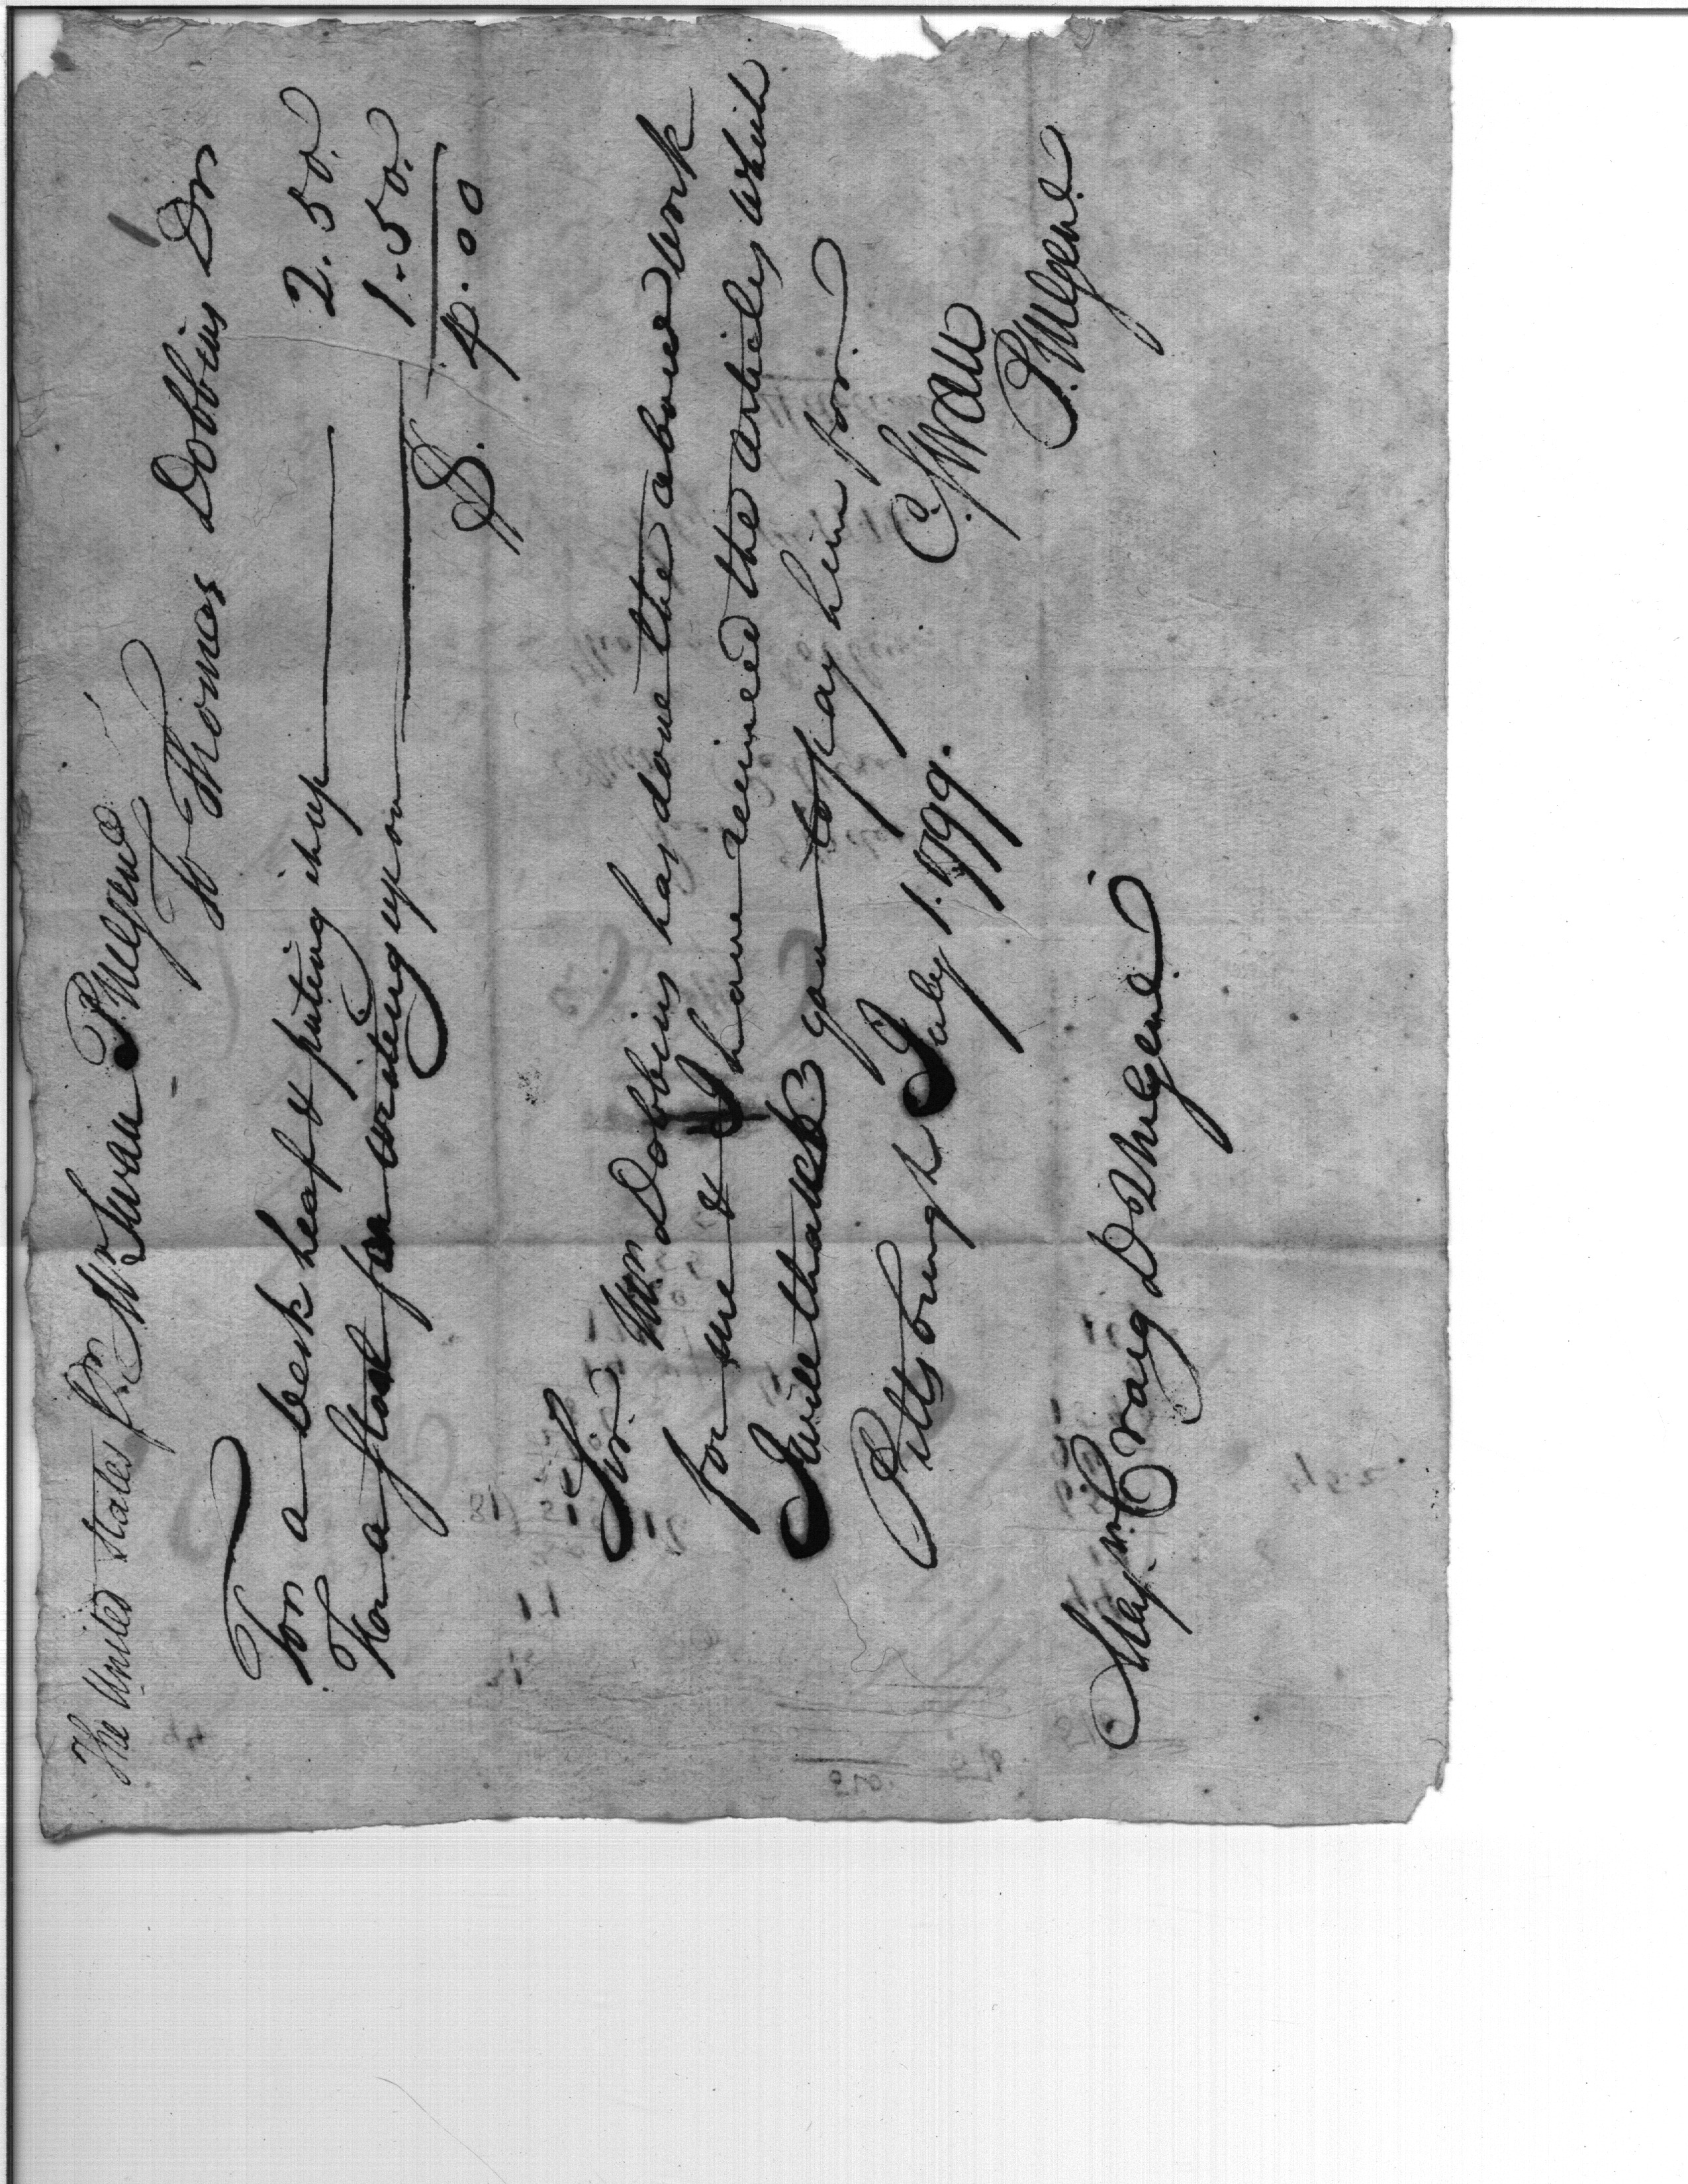 The United States for Mr Swan P. M. Gen.l
To Thomas Dobbins Dr
For a desk leaf & puting it up 2.50
For a stool for writing upon 1.50
$. 4.00
Sir. Mr Dobbins has done the above work
for me & I have received the articles which
I will thank you to pay him for.
Pittsburgh July 1. 1799.
C. Swan
P. M. Gen.l
Maj.r Craig D Q M Gen.l